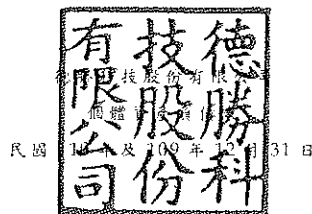 德勝科
技股份
有限公司
技股份有限
個體
民國 年及 109 年 12 月 31 日